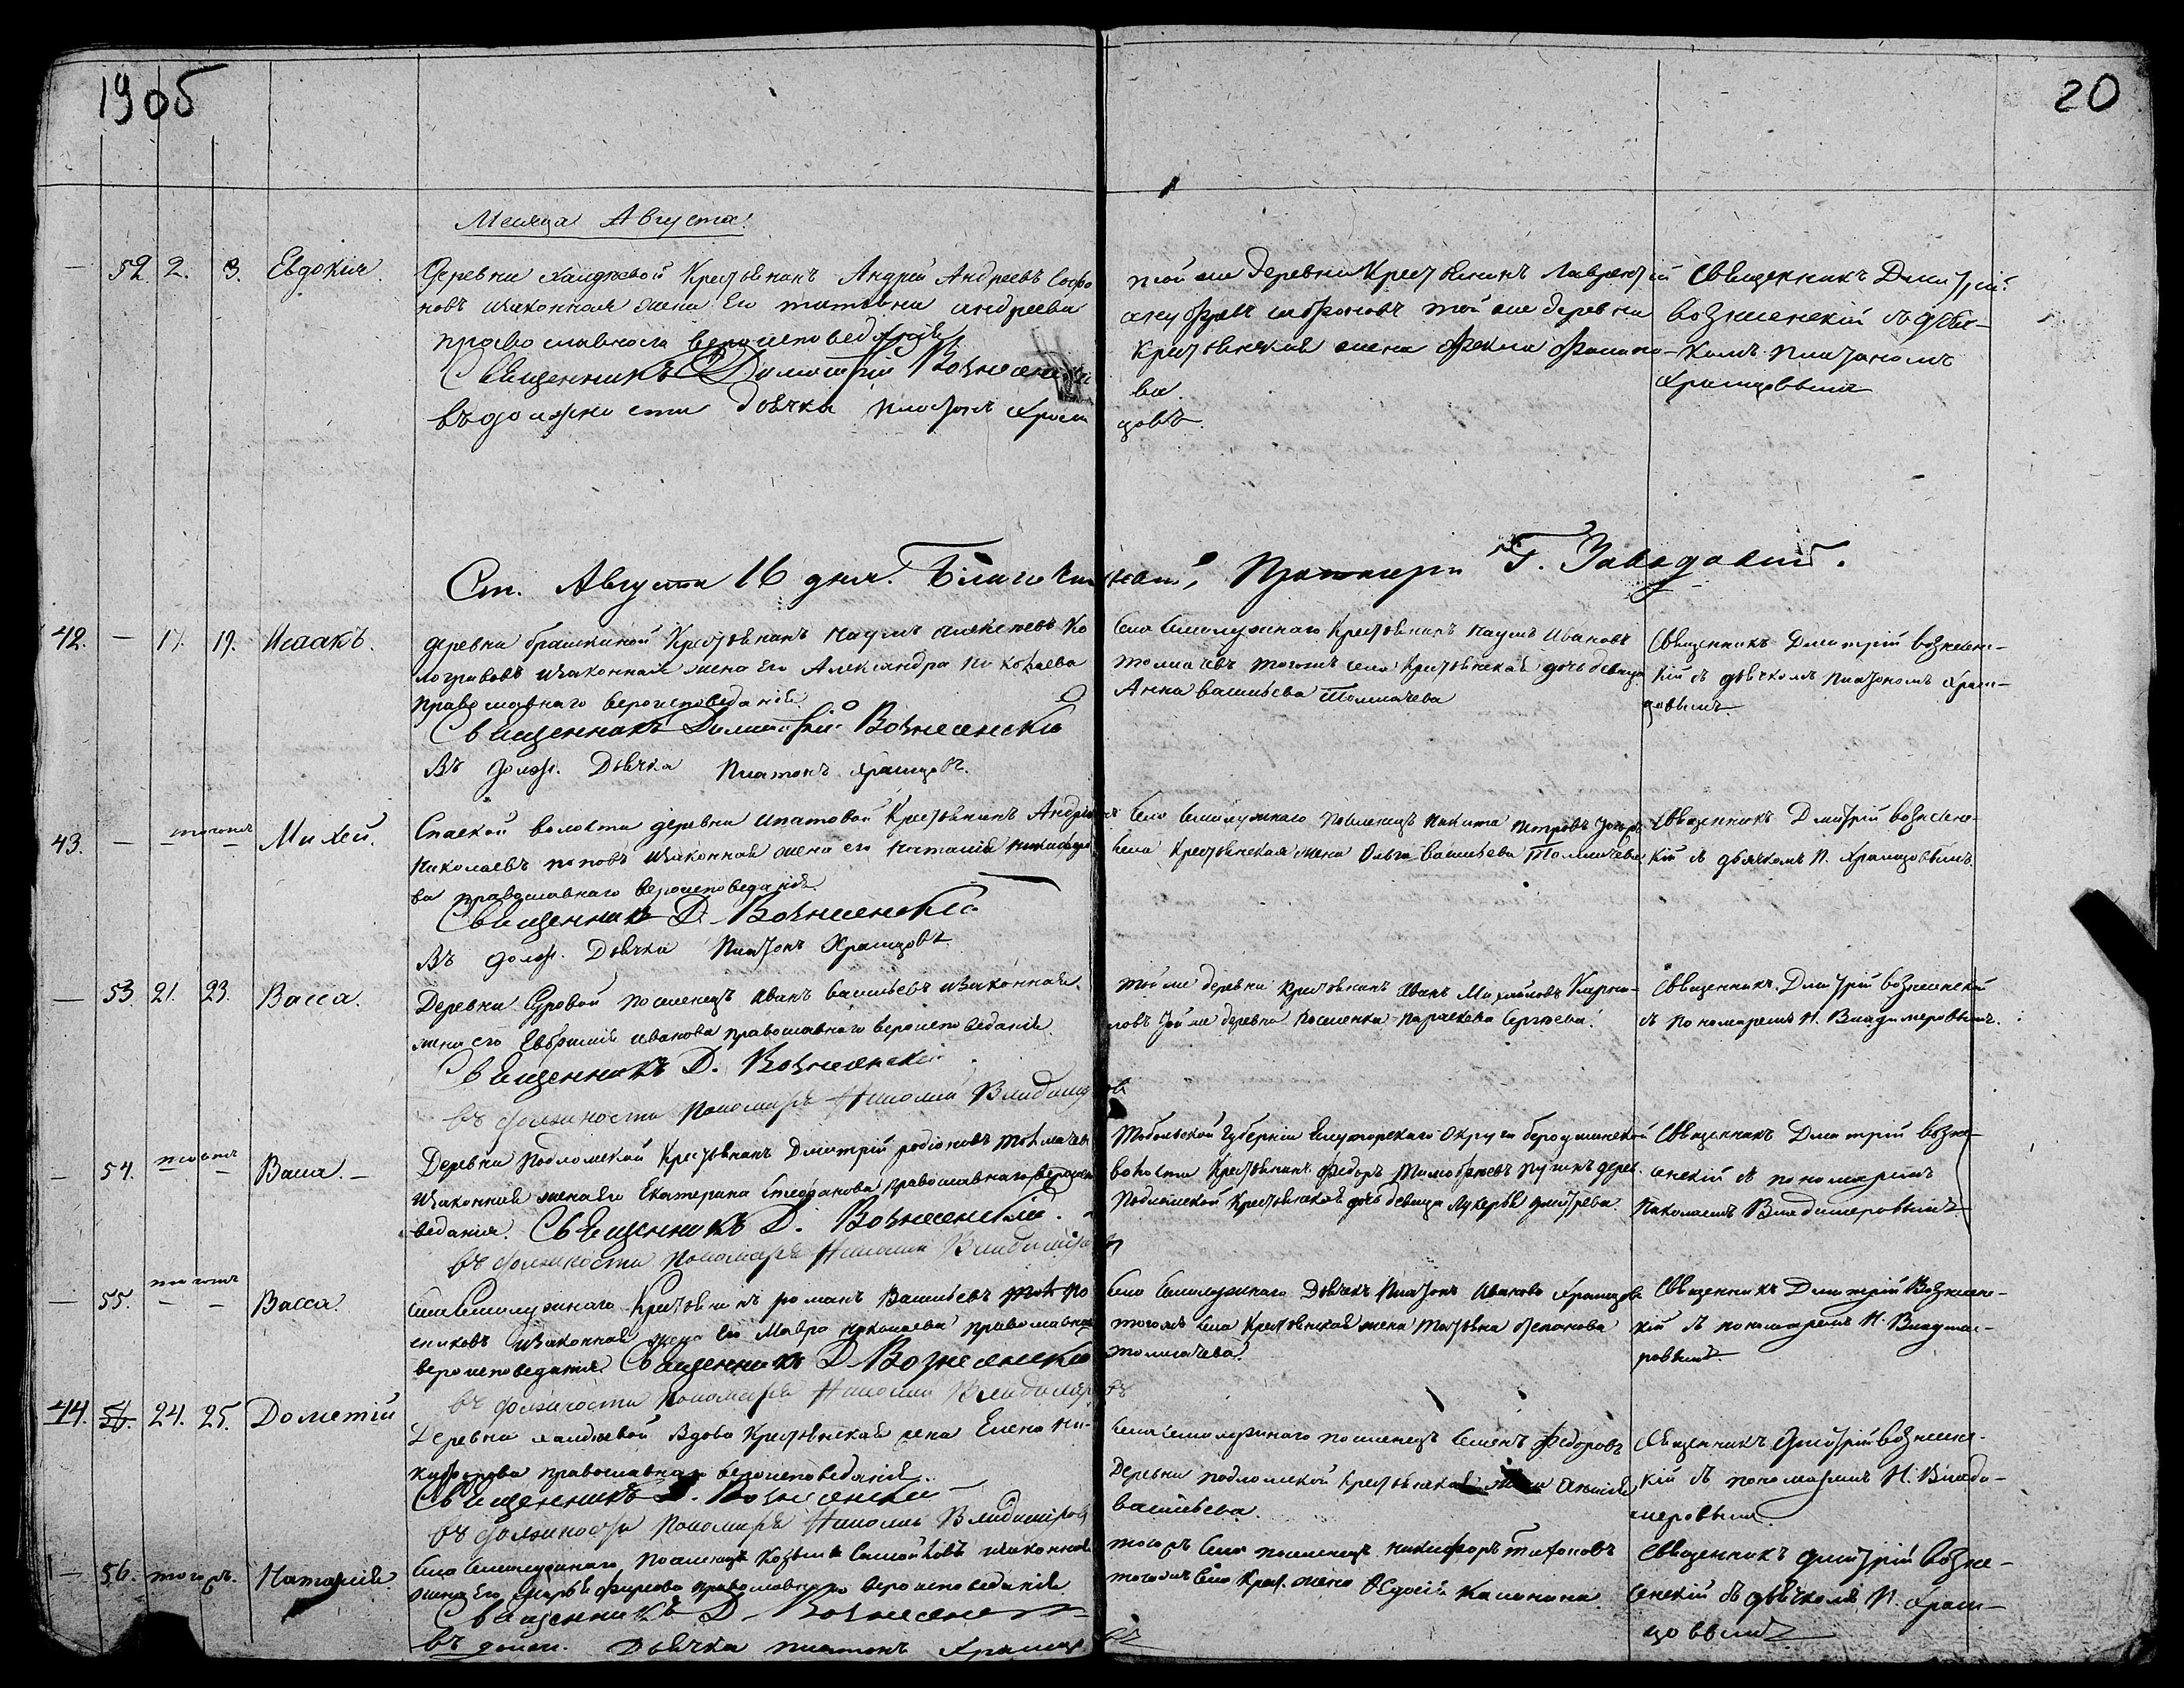 1905
20
Месяца Августа.
— 52. 2. 3. Евдокия
Деревни Крестьянинъ Андрей Андреевъ Софо
новъ изаконная жена его татьяна андреева
православнаго вероисповедания
Священникъ Димитрій Вознесенскій
въ должности дьячка платонъ Храм
той же деревни Крестьянинъ Лаврентій
той же деревни
Крестьянская жена Фекла
ва.
цовъ
Священникъ Дмитрій
вознесенскій съ дьяч-
комъ платономъ
Храмцовымъ
Ст. Августа 16 дня. Благочинный, Протоіерей Г. Заводовскій.
42. — 17. 19. Исаакъ.
деревни брашкиной Крестьянинъ наумъ алексеевъ Ко
логривовъ изаконная жена его Александра николаева
православнаго вероисповеданія
Священникъ Димитрій Вознесенскій
Въ долж. Дьячка Платонъ Храмцовъ.
Села Семилужнаго Крестьянинъ наумъ Ивановъ
толмачевъ тогожъ села Крестьянская дочь девица
Анна васильева Толмачева
Священникъ Дмитрій вознесен-
кій съ дьячкомъ платономъ Храм-
цовымъ.
43. — тогожъ — Михей.
Спаской волости деревни ипатовой Крестьянинъ Андрей
Николаевъ поповъ изаконная жена его наталія никифоро
ва православнаго вероисповеданія
Священникъ Д. Вознесенскій
Въ долж. Дьячка Платонъ Храмцовъ
Села Семилужнаго поселенецъ никита петровъ
села Крестьянская жена Ольга васильева Толмачева
Священникъ Дмитрій вознесен-
кій съ дьячкомъ П. Храмцовымъ.
— 53. 21. 23. Васса.
Деревни Суровой поселенецъ иванъ васильевъ изаконная
жена его Евфросинія иванова православнаго вероисповеданія
Священникъ Д. Вознесенскій
въ должности пономаря Николай Владимировъ
той же деревни крестьянинъ Иванъ Михайловъ Карпо-
ловъ той же деревни поселенка параскева Сергеева.
Священникъ Дмитрій вознесенскій
съ пономаремъ Н. Владимеровымъ.
— 54. тогожъ — Васса. —
Деревни подломской Крестьянинъ Дмитрій родіоновъ толмачевъ
изаконная жена его Екатерина Стефанова православнаго вероиспо
веданія. Священникъ Д. Вознесенскій.
въ должности пономаря Николай Владимировъ
Тобольской Губерніи Ялуторскаго округа
волости Крестьянинъ Федоръ тимофеевъ дерев.
Подломской Крестьянская дочь девица Лукерья дмитрева
Священникъ Дмитрій возне-
сенскій съ пономаремъ
николаемъ Владимеровымъ
— 55. тогожъ — — Васса.
Села Семилужнаго Крестьянинъ романъ Васильевъ
изаконная жена его Мавра николаева православнаго
вероисповеданія. Священникъ Д. Вознесенскій
въ должности пономаря Николай Владимировъ
Села Семилужнаго Дьячекъ Платонъ Ивановъ Храмцовъ
тогожъ села Крестьянская жена татьяна степанова
толмачева.
Священникъ Дмитрій Вознесен-
кій съ пономаремъ Н. Владиме-
ровымъ
44. 56. 24. 25. Дометій
Деревни халдеевой вдова Крестьянская жена Елена ни-
кифорова православнаго вероисповеданія.
Священникъ Д. Вознесенскій
въ должности пономаря Николай Владимировъ
села семилужнаго поселенецъ Семенъ Федоровъ
Деревни подломской крестьянская жена анисія
васильева.
Священникъ Дмитрій вознесен-
кій съ пономаремъ Н. Влади-
меровымъ
— 56. тогожъ. Наталія.
Села Семилужнаго поселенецъ Козьма Самойловъ изаконная
жена его Марья Фирсова православнаго вероисповеданія
Священникъ Д. Вознесенск
въ долж. Дьячка платонъ Храмцовъ
тогожъ Села поселенецъ никифоръ тихоновъ
тогожъ Села Крес. жена Федосія Калинина.
Священникъ дмитрій возне-
сенскій съ дьячкомъ П. Храм-
цовымъ